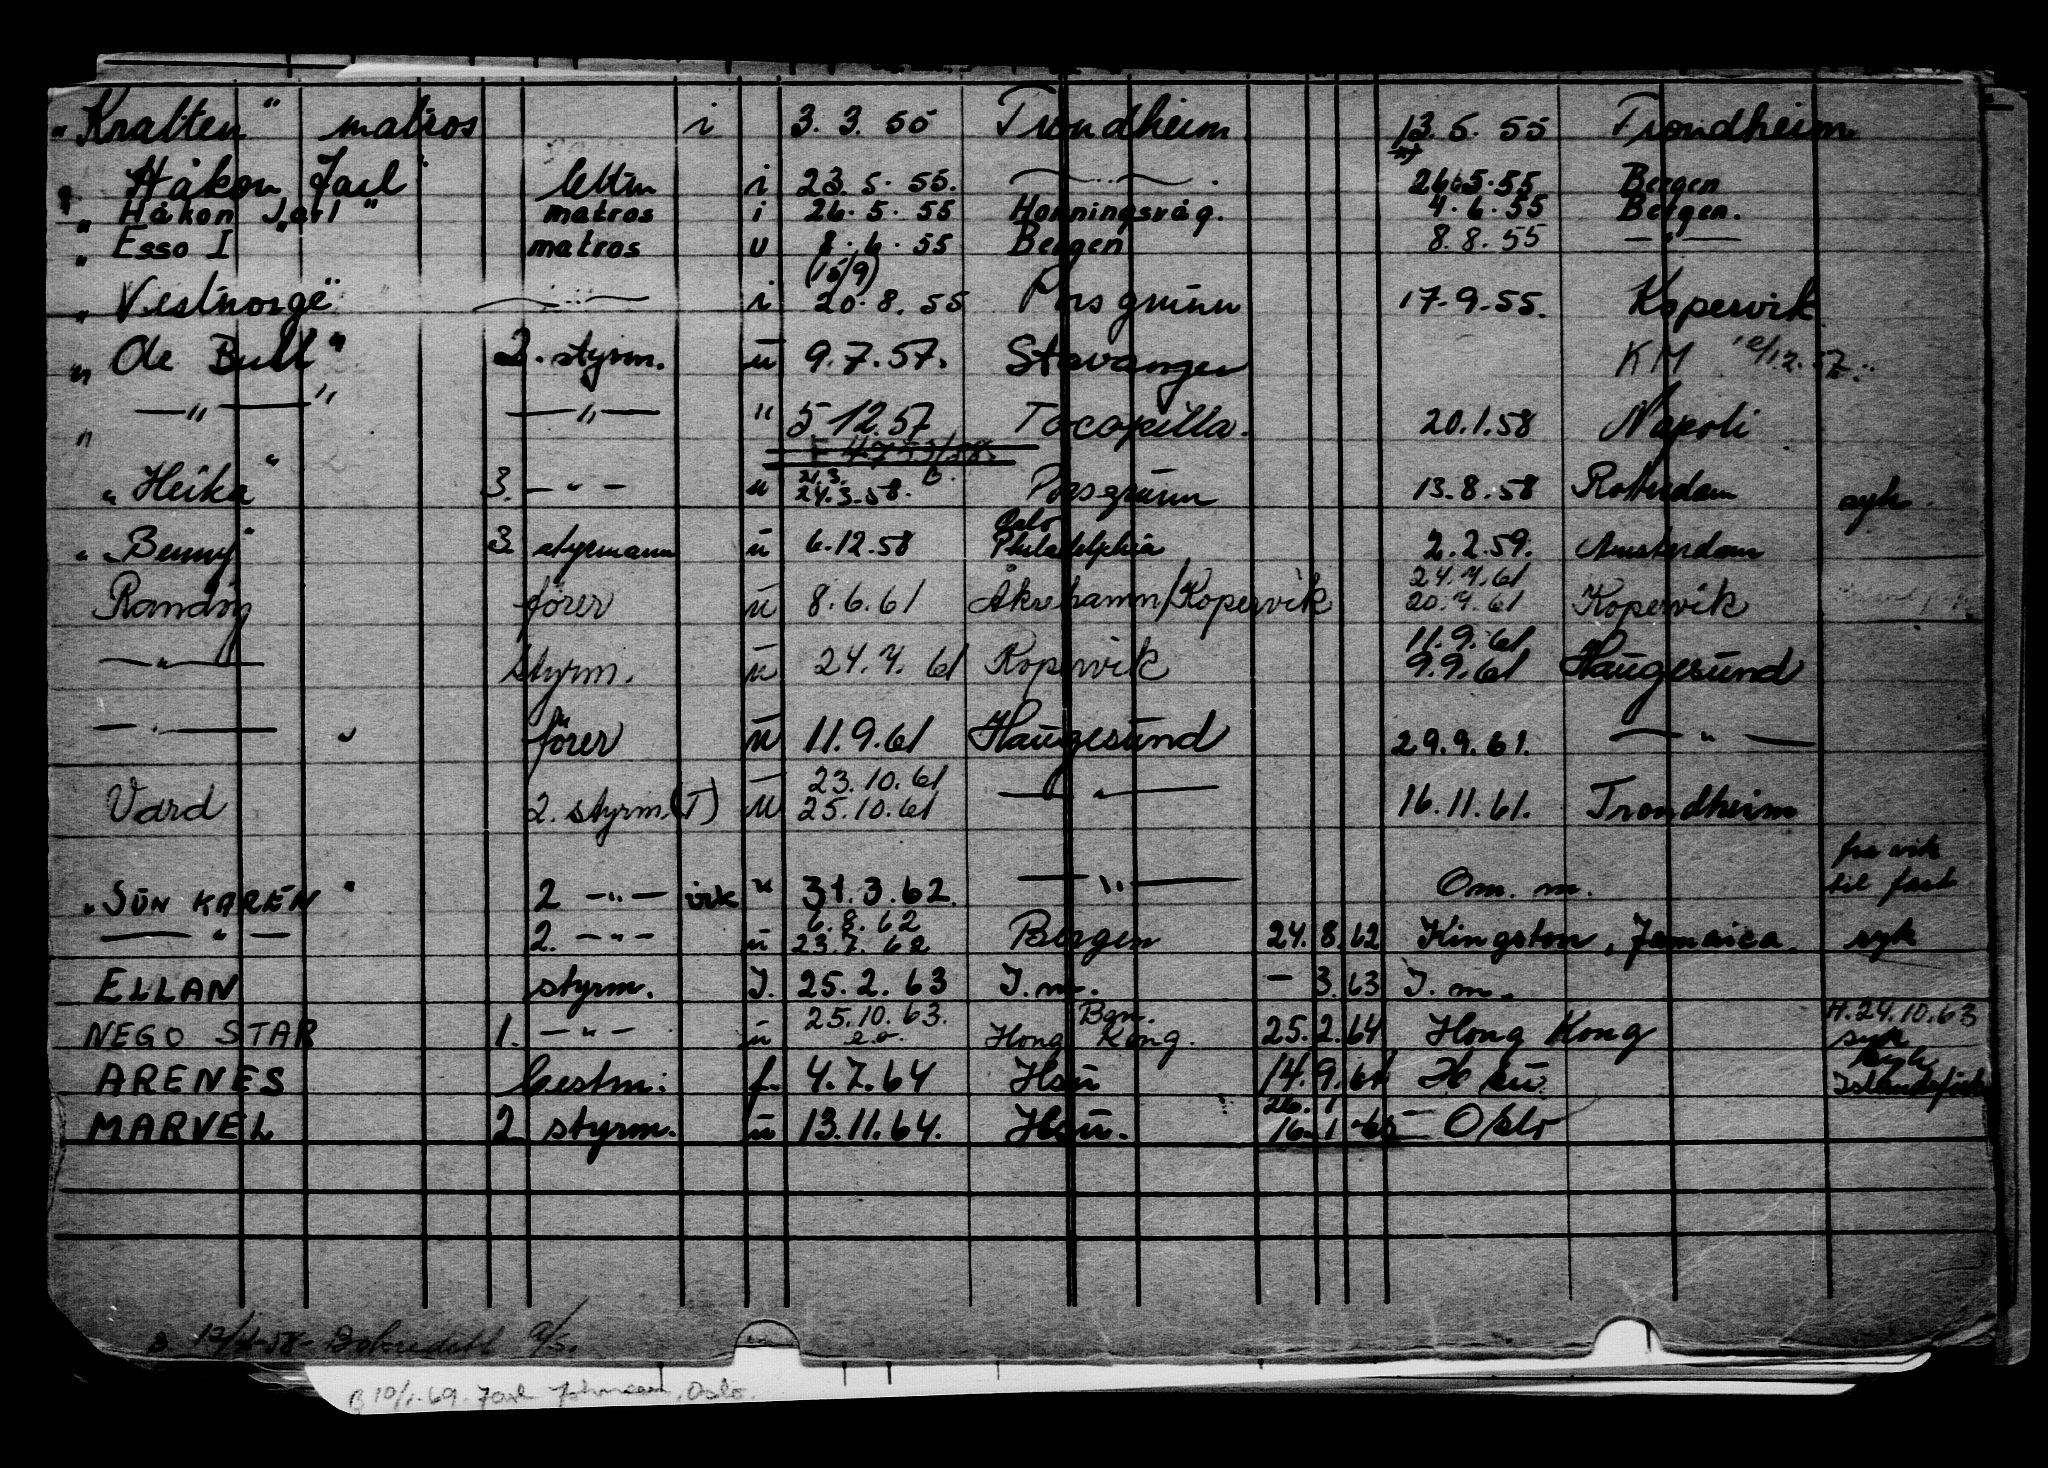 "Kratten" matros i 3. 3. 55 Trondheim 13. 5. 55 Trondheim
" Håkon Jarl" lettm i 23. 5. 55. —"— 26.5.55 Bergen
" Håkon Jarl" matros i 26. 5. 55 Honningsvåg. 4. 6. 55 Bergen.
" Esso I" matros u 8. 6. 55 Bergen 8. 8. 55 —"—
(15/9)
" Vestnorge" —"— i 20. 8. 55 Porsgrunn 17-9-55. Kopervik
" Ole Bull" 2. styrm. u 9.7.57. Stavanger KM /12.57
" —"—" —"— " 5 12.57 Tocopilla. 20.1.58 Napoli
21.3.
" Heika" 3. —"— u 24.3.58. Porsgrunn 13.8.58 Rotterdam syk.
Oslo
" Benny" 3. styrmann u 6.12.58 Philadelphia 2.2.59. Amsterdam
24.7.61
Randöy förer u 8.6.61 Åkrehamn/Kopervik 20.7.61 Kopervik
11.9.61
—"— styrm. u 24.7.61 Kopervik 9.9.61 Haugesund
—"— förer u 11.9.61 Haugesund 29.9.61. —"—
23.10.61
Vard 2. styrm.(T) u 25.10.61 —"— 16.11.61. Trondheim
fra vik
"SUN KAREN" 2 —"— vik " 31.3.62. —"— Om. m. til fast
6.8.62
—"— 2. —"— u 23.7.62 Bergen 24.8.62 Kingston, Jamaica. syk
ELLAN styrm. I. 25.2.63 I.m. – 3.63 I.m.
25.10.63. Bgn. H.24.10.63
NEGO STAR 1. —"— u e.o. Hong Kong. 25.2.64 Hong Kong syk
ARENES bestm. f. 4.7.64 Hsu 14.9.64 Hsu. Islandsfisk
26.1
MARVEL 2. styrm. u 13.11.64. Hsu. 16.1-65 Oslo
B 10/1.69. Jarl Johnsen, Oslo.